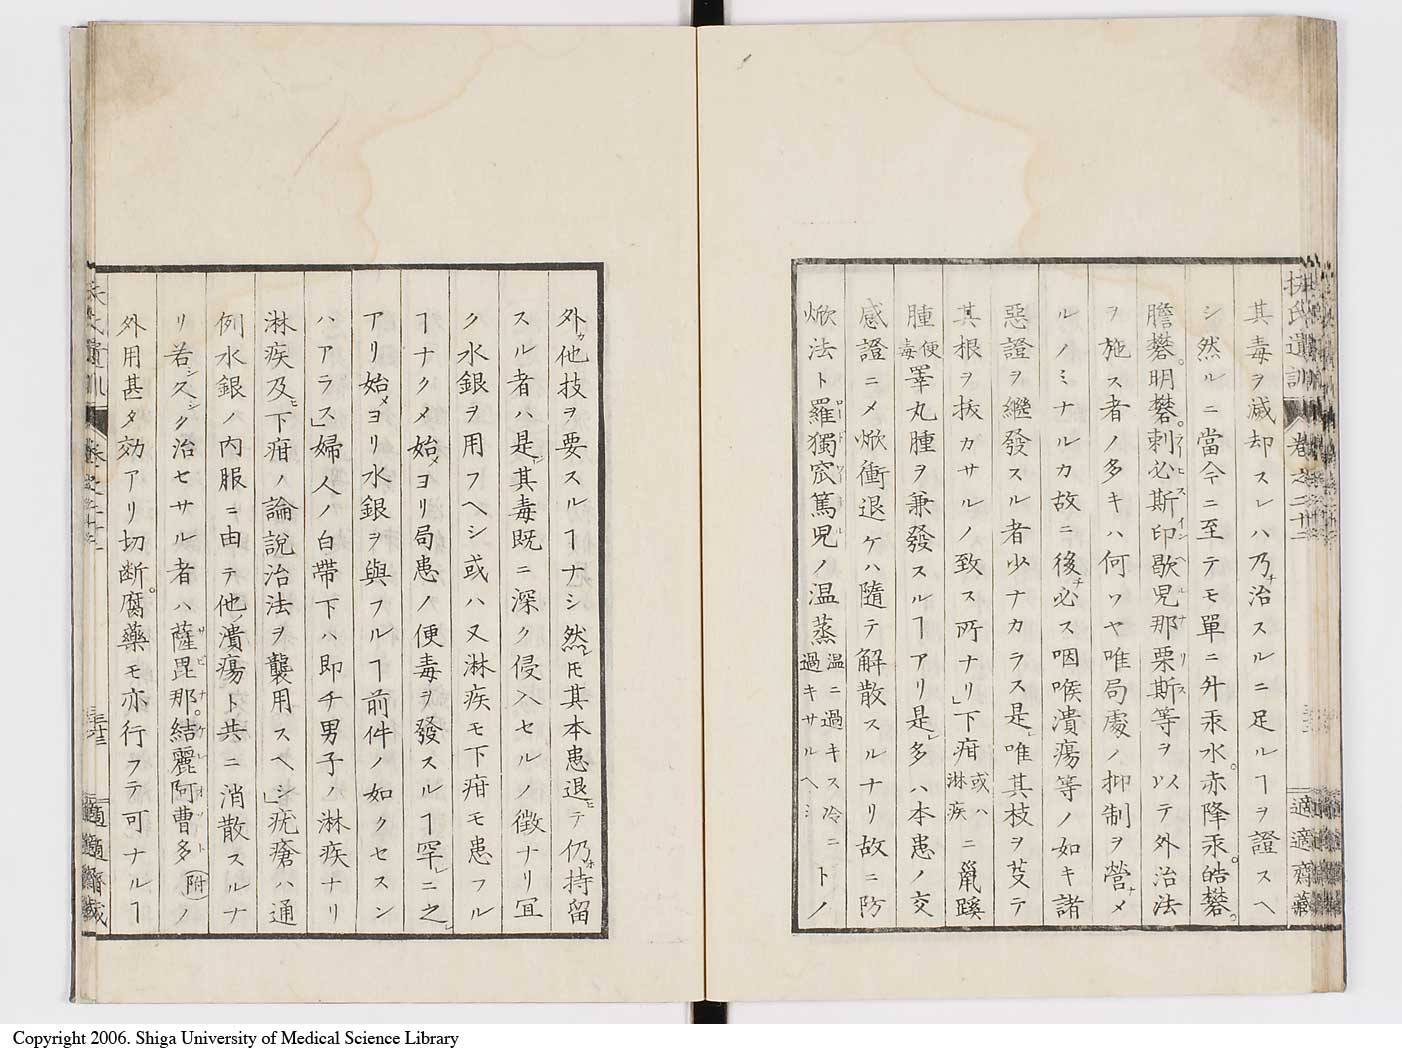 扶氏遺訓 卷之二十二 適適齋藏
其毒ヲ滅却スレハ乃チ治スルニ足ルヿヲ證スヘ
シ然ルニ當今ニ至テモ單ニ升汞水。赤降汞。皓礬。
膽礬。明礬。剌必斯印歇児那栗斯等ヲ以テ外治法
ヲ施ス者ノ多キハ何ソヤ唯局處ノ抑制ヲ營ナメ
ルノミナルカ故ニ後チ必ス咽喉潰瘍等ノ如キ諸
惡證ヲ繼發スル者少ナカラス是レ唯其枝ヲ芟テ
其根ヲ拔カサルノ致ス所ナリ」下疳或ハ淋疾ニ鼠蹊
腫便毒睪丸腫ヲ兼發スルヿアリ是レ多ハ本患ノ交
感證ニメ焮衝退ケハ隨テ解散スルナリ故ニ防
焮法ト羅獨宻篤児ノ温蒸温ニ過キス冷ニ過キサルヘシトノ
外カ他技ヲ要スルヿナシ然レ𪜈其本患退ヒテ仍ホ持留
スル者ハ是レ其毒既ニ深ク侵入セルノ徴ナリ冝
ク水銀ヲ用フヘシ或ハ又淋疾モ下疳モ患フル
ヿナクメ始メヨリ局患ノ便毒ヲ發スルヿ罕レニ之レ
アリ始メヨリ水銀ヲ與フルヿ前件ノ如クセスン
ハアラス」婦人ノ白帶下ハ即チ男子ノ淋疾ナリ
淋疾及ヒ下疳ノ論説治法ヲ襲用スヘシ」疣瘡ハ通
例水銀ノ内服ニ由テ他ノ潰瘍ト共ニ消散スルナ
リ若シ久シク治セサル者ハ薩毘那。結麗阿曹多附ノ
外用甚タ効アリ切断。腐藥モ亦行フテ可ナルヿ
Copyright 2006. Shiga University of Medical Science Library